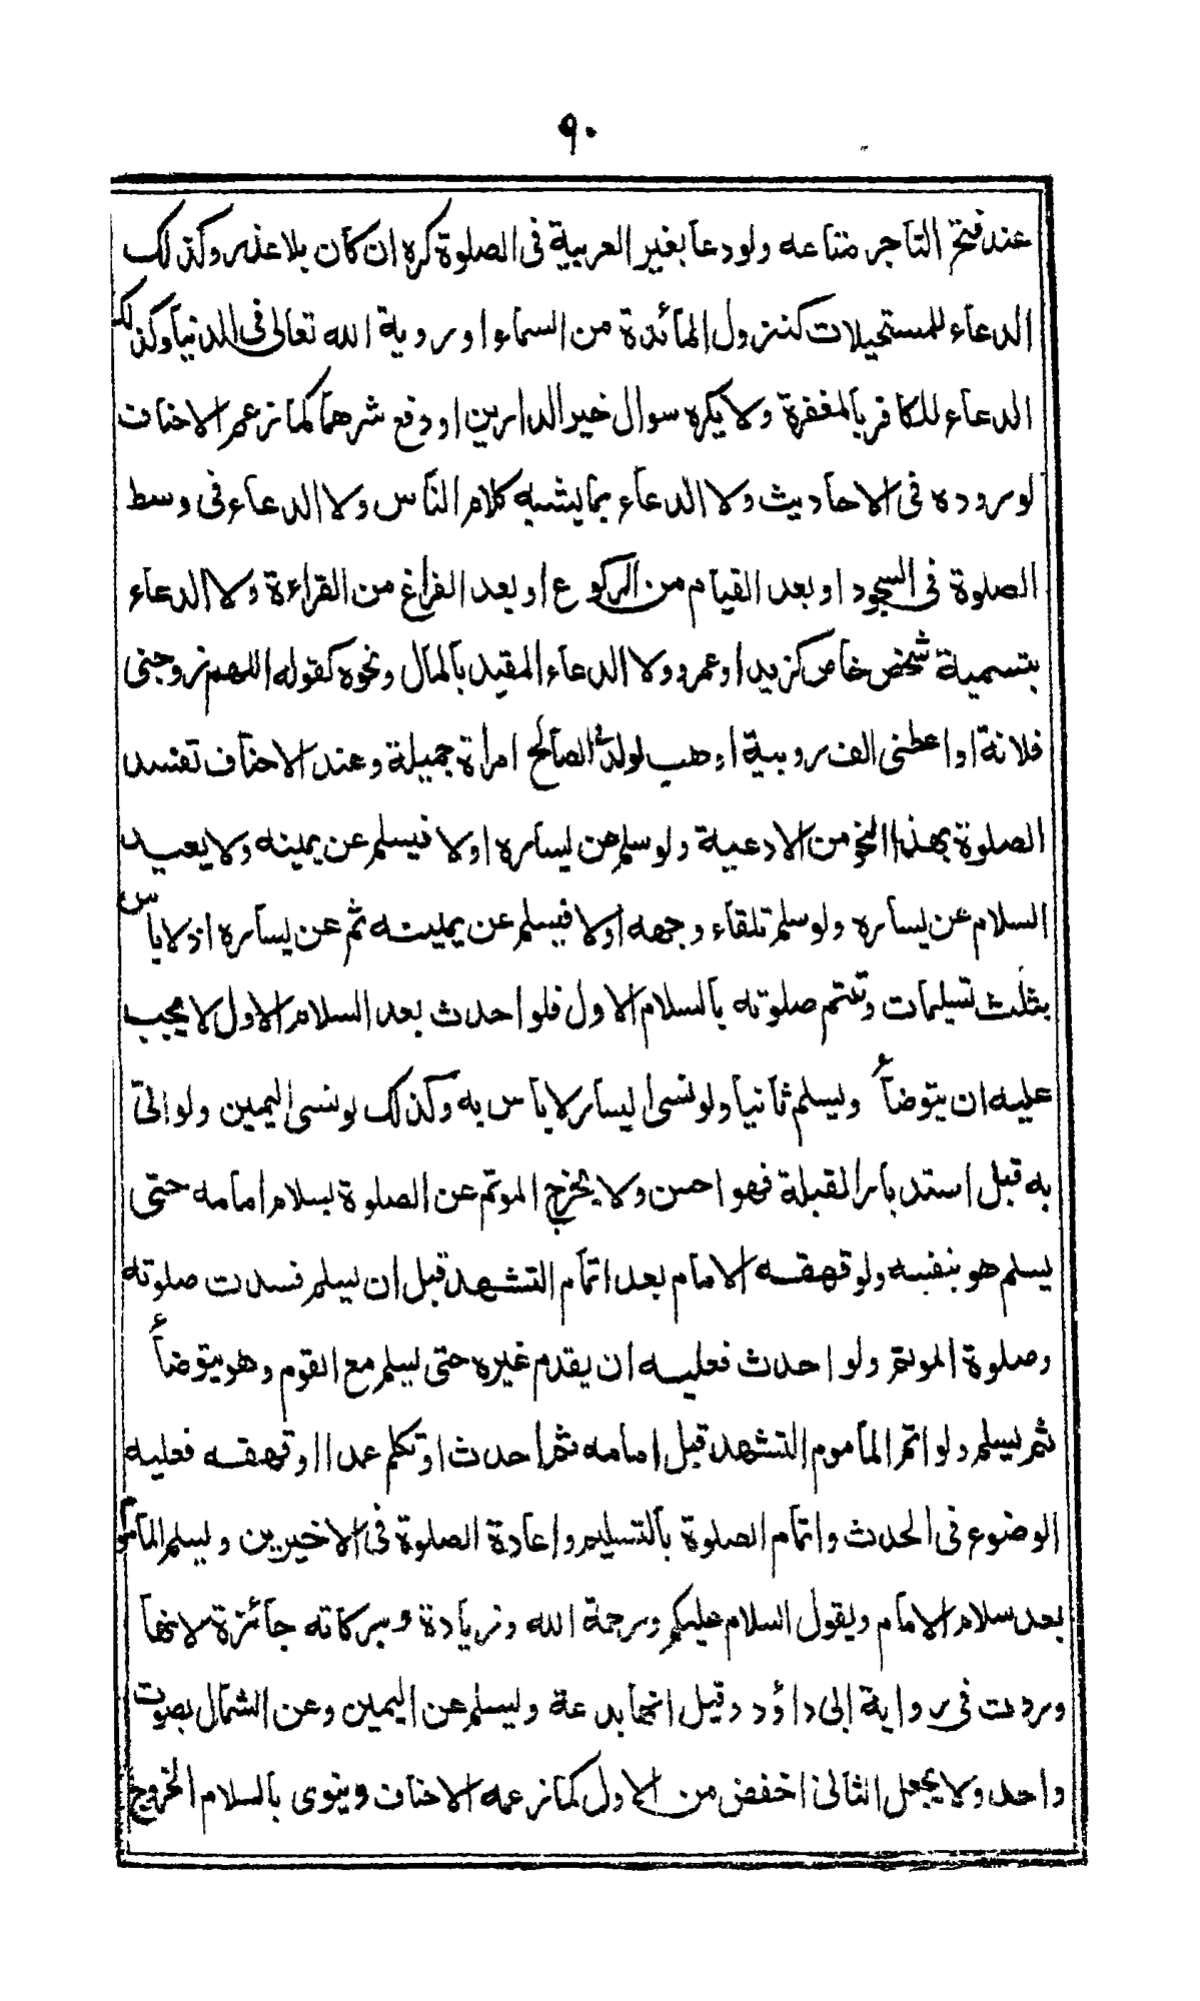 ٩٠
عند فتح التاجر متاعه ولو دعا بغير العربية فى الصلوة كره ان كان بلا عذر وكذلك
الدعاء للمستحيلات كنزول المائدة من السماء او روية الله تعالى فى الدنيا وكذلك
الدعاء للكافر بالمغفرة ولا يكره سوال خير الدارين او دفع شرهما كما زعم الاحناف
لوروده فى الاحاديث ولا الدعاء بما يشبه كلام الناس ولا الدعاء فى وسط
الصلوة فى السجود او بعد القيام من الركوع او بعد الفراغ من القراءة ولا الدعاء
بتسمية شخص خاص كزيد او عمرو ولا الدعاء المقيد بالمال ونحوه كقوله اللهم زوجنى
فلانة او اعطنى الف روبية او هب لولدى الصالح امراة جميلة وعند الاحناف تفسد
الصلوة بهذا النحو من الادعية ولو سلم عن يساره اولا فيسلم عن يمينه ولا يعيد
السلام عن يساره ولو سلم تلقاء وجهه اولا فيسلم عن يمينه ثم عن يساره اذ لا باس
بثلث تسليمات وتتم صلوته بالسلام الاول فلو احدث بعد السلام الاول لا يجب
عليه ان يتوضأ وليسلم ثانيا ولو نسى اليسار لا باس به وكذلك لو نسى اليمين ولو اتى
به قبل استدبار القبلة فهو احسن ولا يخرج الموتم عن الصلوة بسلام امامه حتى
يسلم هو بنفسه ولو قهقه الامام بعد اتمام التشهد قبل ان يسلم فسدت صلوته
وصلوة الموتم ولو احدث فعليه ان يقدم غيره حتى يسلم مع القوم وهو يتوضأ
ثم يسلم ولو اتم الماموم التشهد قبل امامه ثم احدث او تكلم عمدا او قهقه فعليه
الوضوء فى الحدث واتمام الصلوة بالتسليم واعادة الصلوة فى الاخيرين وليسلم المامو
بعد سلام الامام ويقول السلام عليكم ورحمة الله وزيادة وبركاته جائزة لانها
وردت فى رواية ابى داؤد وقيل انها بدعة وليسلم عن اليمين وعن الشمال بصوت
واحد ولا يجعل الثانى اخفض من الاول كما زعمه الاحناف وينوى بالسلام الخروج